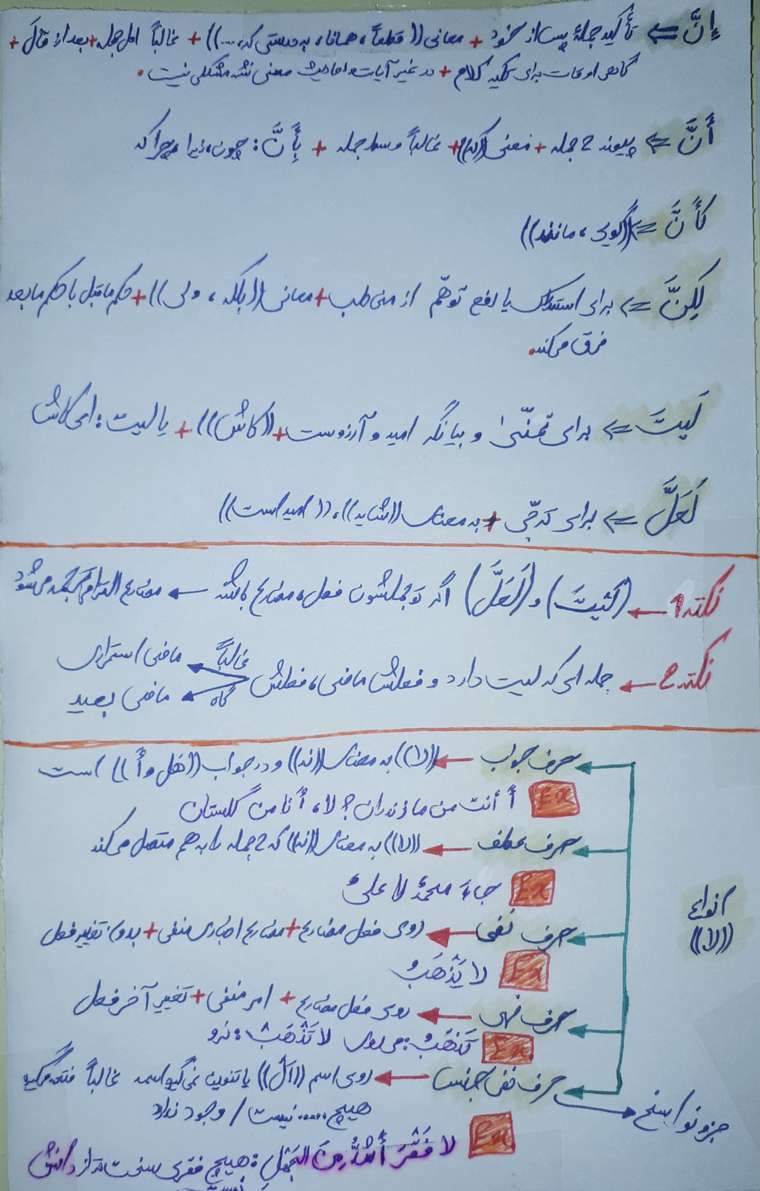 إنَّ ⇐ تأکید جملۀ پس از خود + معانی ((قطعاً، همانا، به درستی که، ...)) + غالباً اول جمله + بعد از قالَ +
گاهی اوقات برای تکیه کلام + در غیر آیات و احادیث معنی نشه مشکلی نیست.
أنَّ ⇐ پیوند 2 جمله + معنی ((که)) + غالباً وسط جمله + بِأنَّ: چون، زیرا، چراکه
کَأنَّ ⇐ ((گویی، مانند))
لکِنَّ ⇐ برای استدراک یا رفع توهّم از مخاطب + معانی ((بلکه، ولی)) + حکم ماقبل با حکم مابعد
فرق میکند.
لَیتَ ⇐ برای تمنّی و بیانگر امید و آرزوست + ((کاش)) + یا لیت: ای کاش
لَعَلَّ ⇐ برای ترجّی + به معنای ((شاید))، ((امید است))
نکته 1 ← (لَیتَ) و (لَعَلَّ) اگه تو جملشون فعل، مضارع باشه ← مضارع التزامی ترجمه می‌شود
نکته 2 ← جمله ای که لیت دارد و فعلش ماضی، فعلش غالباً ماضی استمراری
گاه ماضی بعید
انواع ((لا))
حرف جواب ← ((لا)) به معنای ((نه)) و در جواب ((هَل و أ)) است
Ex أ أنت من مازندران؟ لا، أنا من گلستان
حرف عطف ← ((لا)) به معنای ((نه)) که 2 جمله را به هم متصل میکند
Ex جاءَ محمدٌ لا علیٌ
حرف نفی ← روی فعل مضارع + مضارع اخباری منفی + بدون تغییر فعل
Ex لا یَذْهَبُ
حرف نهی ← روی فعل مضارع + امر منفی + تغییر آخر فعل
Ex تَذهَبُ: می‌روی لا تَذْهَبْ: نرو
حرف نفی جنس ← روی اسم ((اَل)) یا تنوین نمی‌گیرد اسمه غالباً فتحه میگیره
جزو نواسخ
هیچ .... نیست / وجود ندارد
Ex لا فَقْرَ أشَدُّ مِنَ الجَهْلِ: هیچ فقری سخت‌تر از
نیست